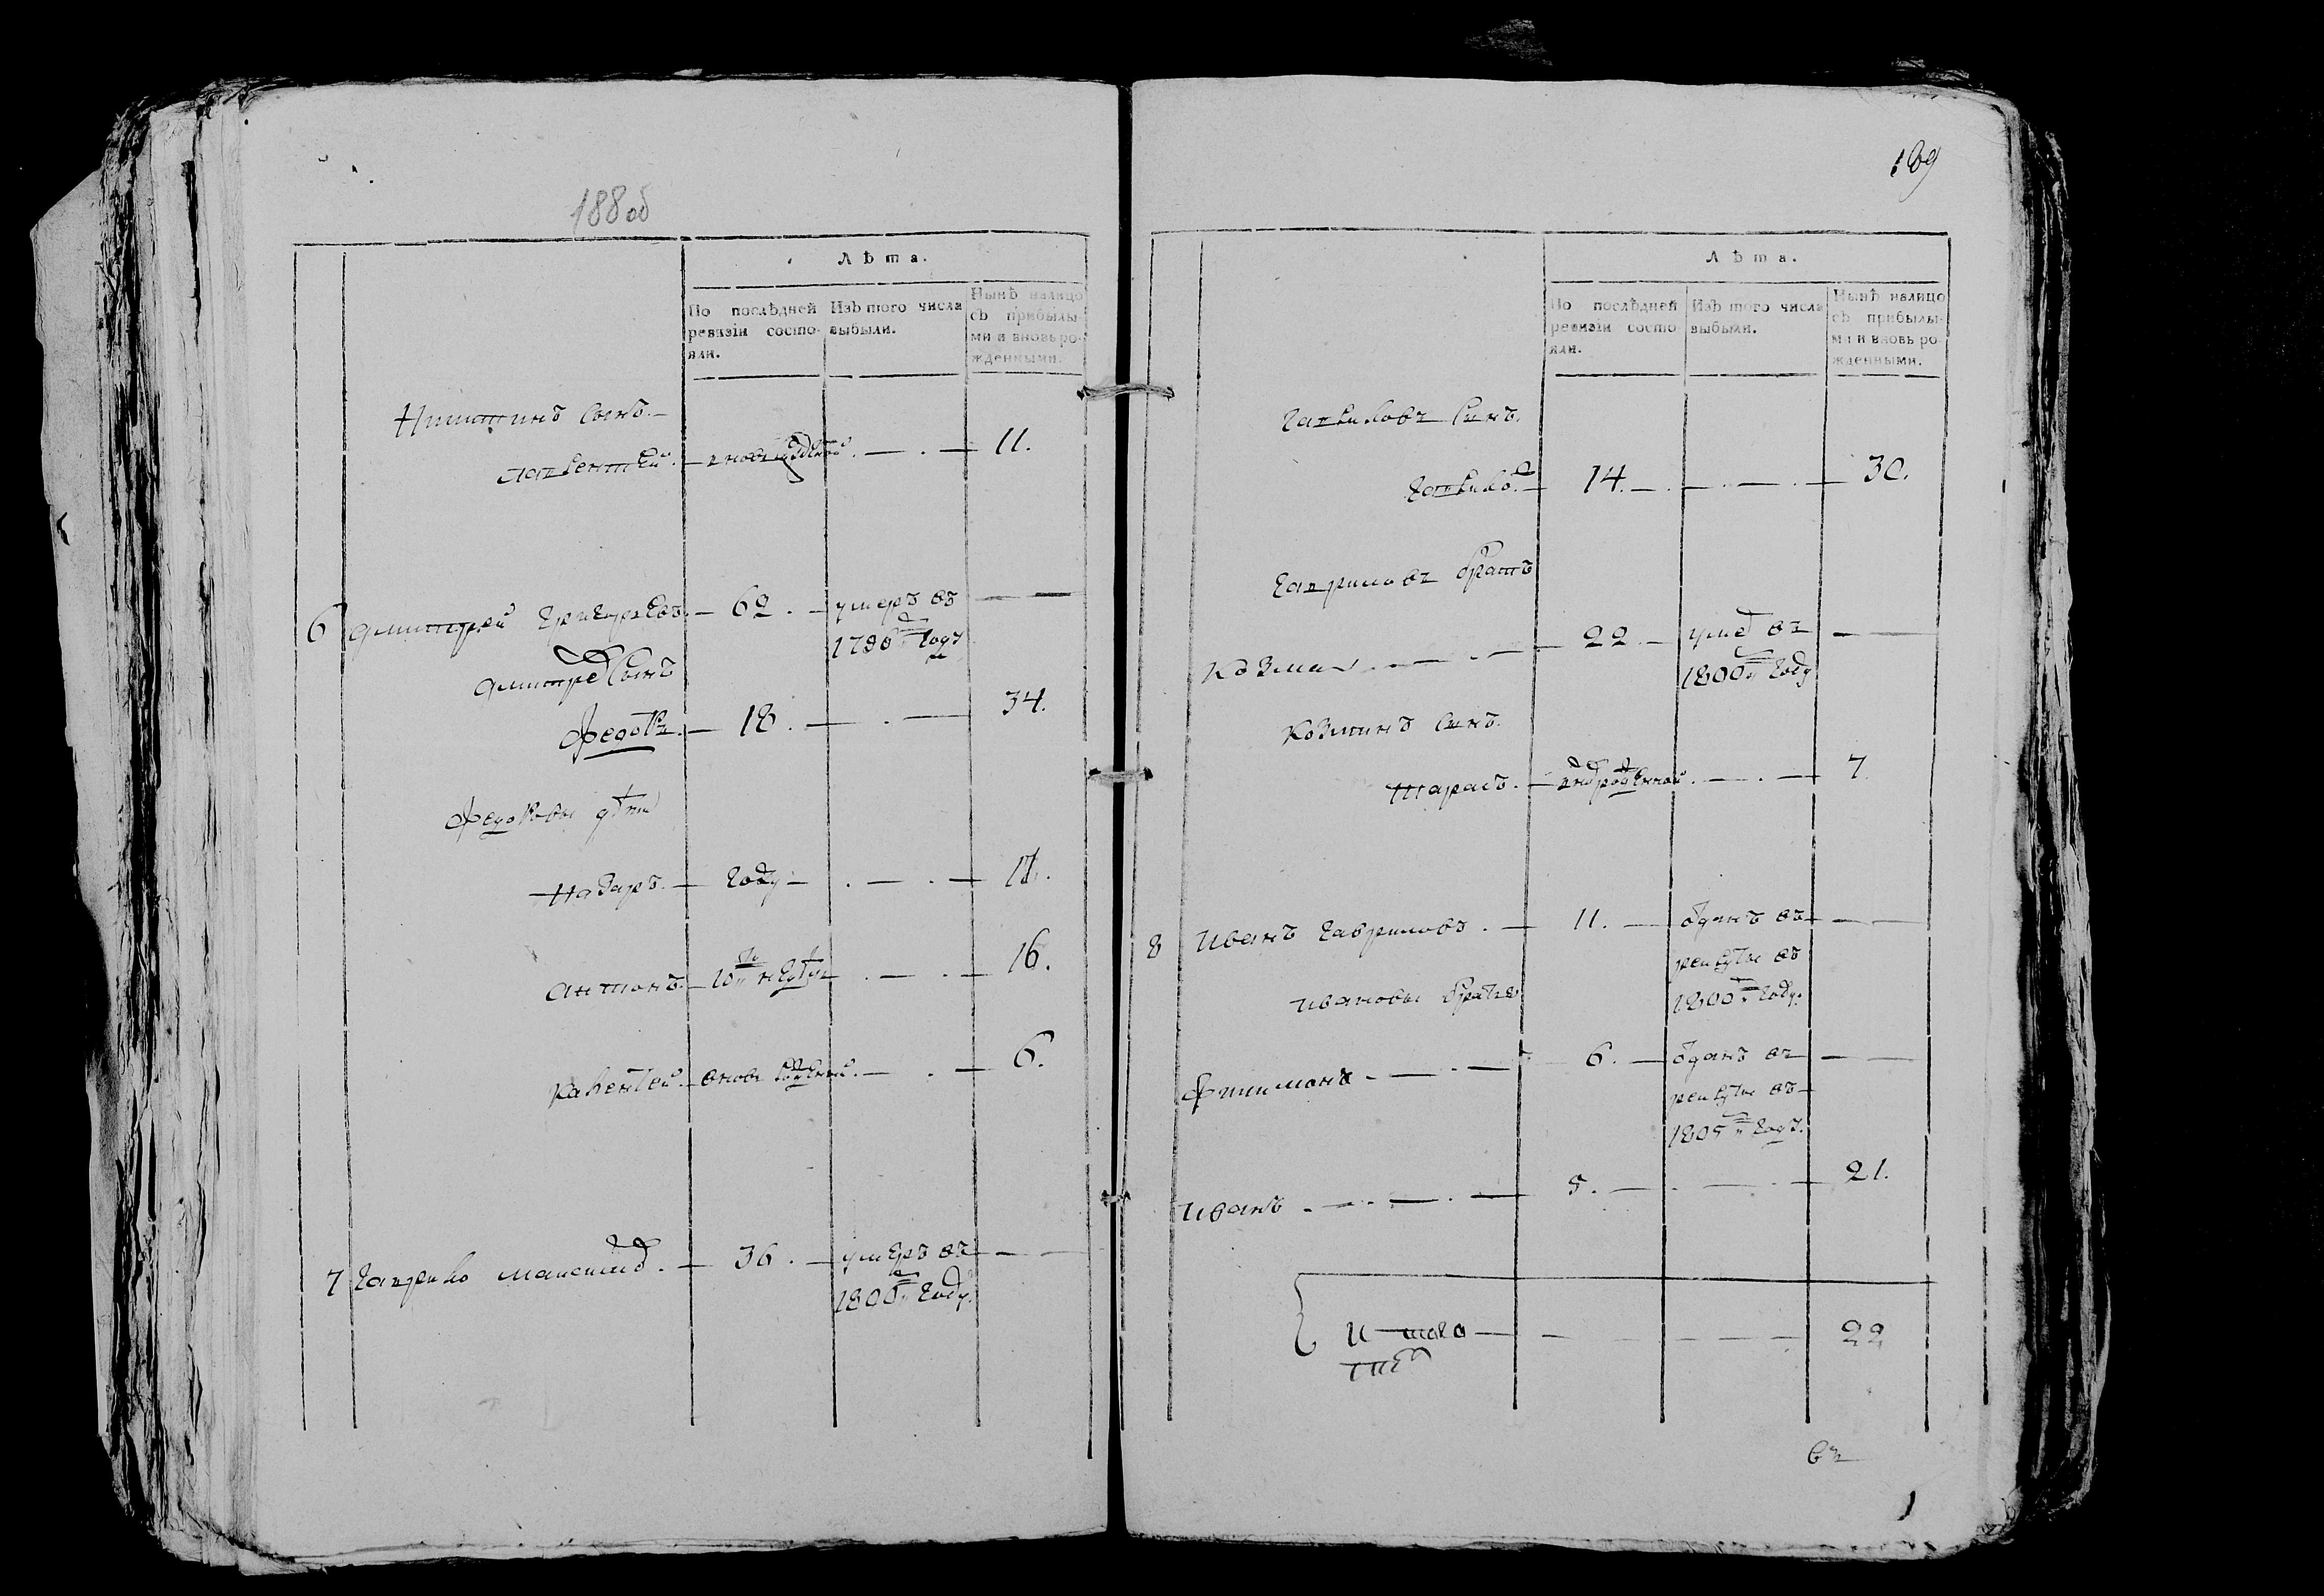 188 об
Лѣта.
По послѣдней ревизіи состояли.
Изъ того числа выбыли.
Нынѣ налицо съ прибылыми и вновь рожденными.
Никитинъ сынъ
Лаврентей. 11.
6 Дмитрей Григорьевъ. 62. умеръ въ
1798м году
Дмитрея сынъ
Федотъ. 18. 34.
Федотовы дѣти
Назаръ. году 17.
Антонъ. 10ти недѣль 16.
вновь рожденной. 6.
7 Гаврило Максимов. 36. умеръ въ
1800м году.
189
Лѣта.
По послѣдней ревизіи состояли.
Изъ того числа выбыли.
Нынѣ налицо съ прибылыми и вновь рожденными.
Гавриловъ сынъ.
Гаврило. 14. 30.
Гавриловъ братъ
Козма 22. умер въ
1800м году
Козминъ сынъ.
Тарасъ. вновь рожденной. 7.
8 Иванъ Гавриловъ. 11. отданъ въ
рекруты въ
1800м году.
Ивановы братья
Филимонъ 6. отданъ въ
рекруты въ
1805м году.
Иванъ 5. 21.
Итого 22
въ